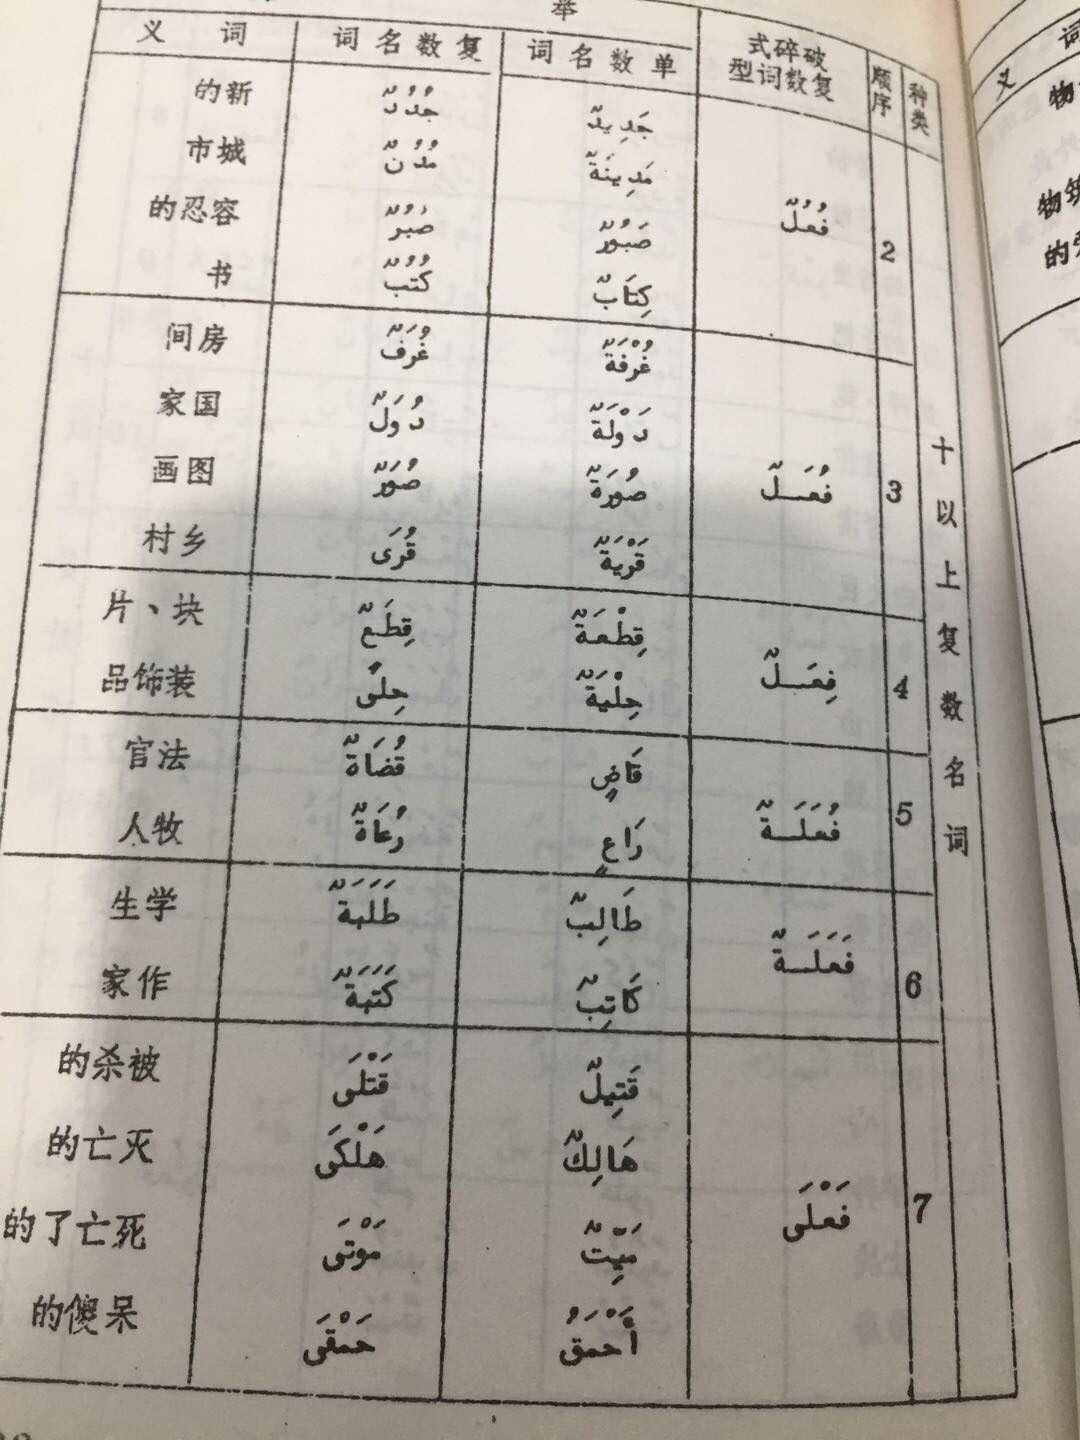 举
种类 顺序 破碎式复数词型 单数名词 复数名词 词义
十以上复数名词
2 فُعُلٌ
جَدِيدٌ جُدُدٌ 新的
مَدِينَةٌ مُدُنٌ 城市
صَبُورٌ صُبُرٌ 容忍的
كِتَابٌ كُتُبٌ 书
3 فُعَلٌ
غُرْفَةٌ غُرَفٌ 房间
دَوْلَةٌ دُوَلٌ 国家
صُورَةٌ صُوَرٌ 图画
قَرْيَةٌ قُرَى 乡村
4 فِعَلٌ
قِطْعَةٌ قِطَعٌ 块、片
حِلْيَةٌ حِلًى 装饰品
5 فُعَلَةٌ
قَاضٍ قُضَاةٌ 法官
رَاعٍ رُعَاةٌ 牧人
6 فَعَلَةٌ
طَالِبٌ طَلَبَةٌ 学生
كَاتِبٌ كَتَبَةٌ 作家
7 فَعْلَى
قَتِيلٌ قَتْلَى 被杀的
هَالِكٌ هَلْكَى 灭亡的
مَيِّتٌ مَوْتَى 死亡了的
أَحْمَقُ حَمْقَى 呆傻的
词义
物
筑物
的